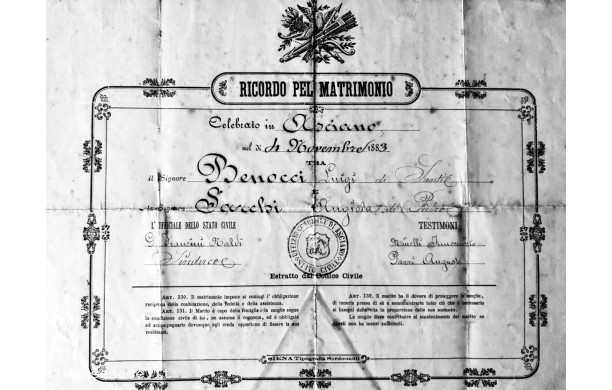 RICORDO PEL MATRIMONIO
Celebrato in Asciano
nel dì 4 Novembre 1883
TRA
il Signore Benocci Luigi di Santi
E
la Signora Sacchi di Pietro
L' UFFICIALE DELLO STATO CIVILE
TESTIMONI
G. Francini Naldi
Sindaco
Parri Augusto
Estratto dal Codice Civile
ART. 130. Il matrimonio impone ai coniugi l' obbligazione
reciproca della coabitazione, della fedeltà e della assistenza.
ART. 131. Il Marito è capo della famiglia e la moglie segue
la condizione civile di lui, ne assume il cognome, ed è obbligata
ad accompagnarlo dovunque egli creda opportuno di fissare la sua
residenza.
ART. 132. Il marito ha il dovere di proteggere la moglie,
di tenerla presso di sè e somministrarle tutto ciò che è necessario
ai bisogni della vita in proporzione delle sue sostanze.
La moglie deve contribuire al mantenimento del marito se
questi non ha mezzi sufficienti.
SIENA Tipografia Sordomuti